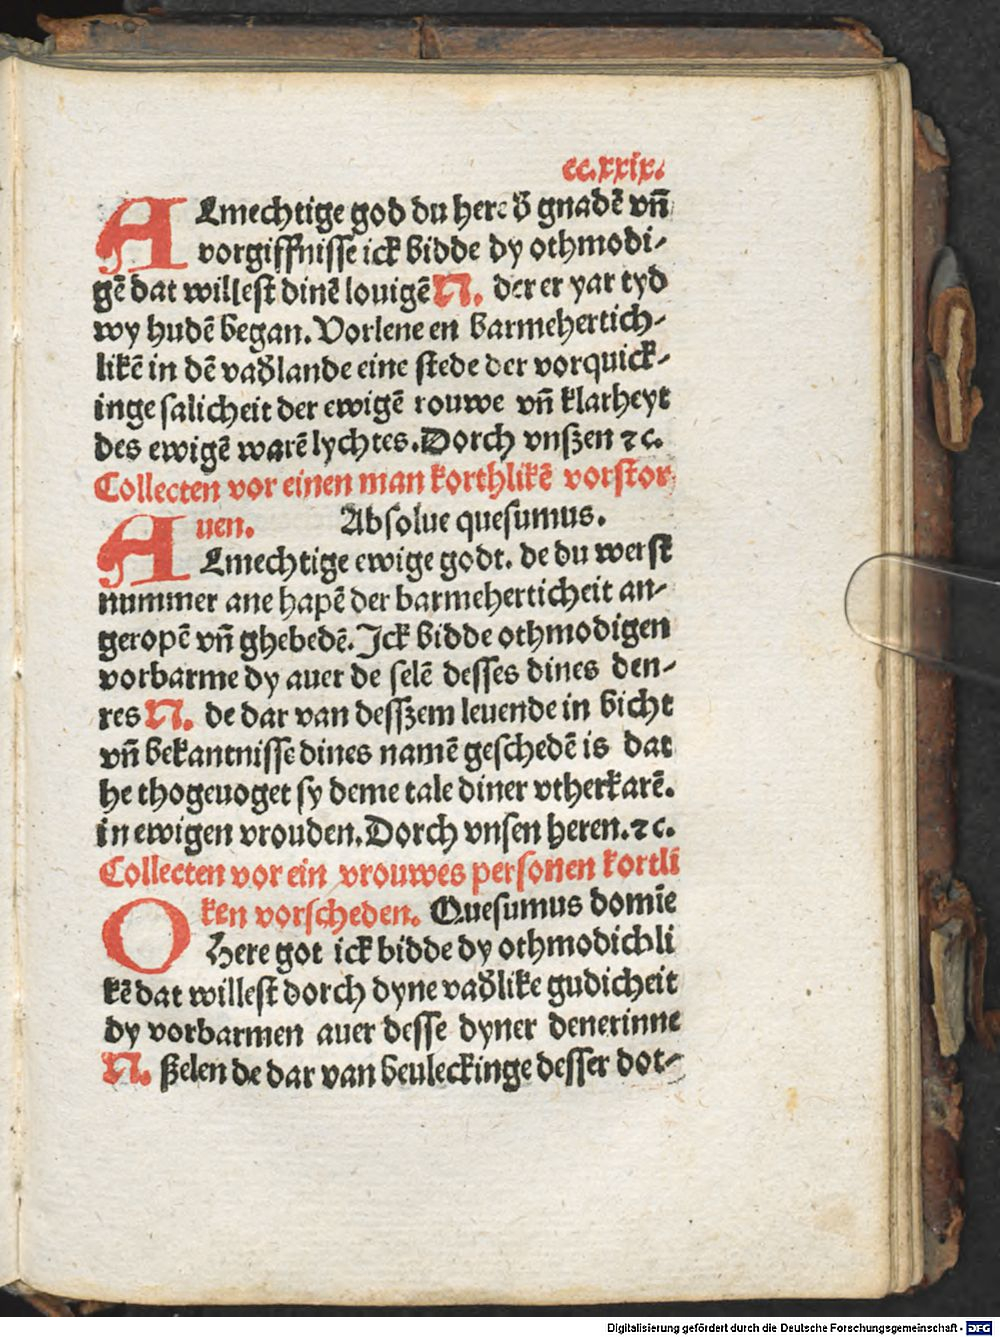 cc.xxix.
ALmechtige god du here d̄ gnadē vn̄
vorgiffnisse ick bidde dy othmodi-
gē dat willest dinē louigē N. der er yar tyd
wy hudē began. Vorlene en barmehertich-
likē in dē vad̄lande eine stede der vorquick-
inge salicheit der ewigē rouwe vn̄ klarheyt
des ewigē warē lychtes. Dorch vnßen ⁊c.
Collecten vor einen man korthlikē vorstor-
uen. Absolue quesumus.
ALmechtige ewige godt. de du werst
nummer ane hapē der barmeherticheit an-
geropē vn̄ ghebedē. Ick bidde othmodigen
vorbarme dy auer de selē desses dines den-
res N. de dar van desszem leuende in bicht
vn̄ bekantnisse dines namē geschedē is dat
he thogeuoget sy deme tale diner vtherkarē.
in ewigen vrouden. Dorch vnsen heren. ⁊c.
Collecten vor ein vrouwes personen kortli
ken vorscheden. Quesumus domīe
O Here got ick bidde dy othmodichli
kē dat willest dorch dyne vad̄like gudicheit
dy vorbarmen auer desse dyner denerinne
N. ßelen de dar van beuleckinge desser dot-
Digitalisierung gefördert durch die Deutsche Forschungsgemeinschaft - DFG